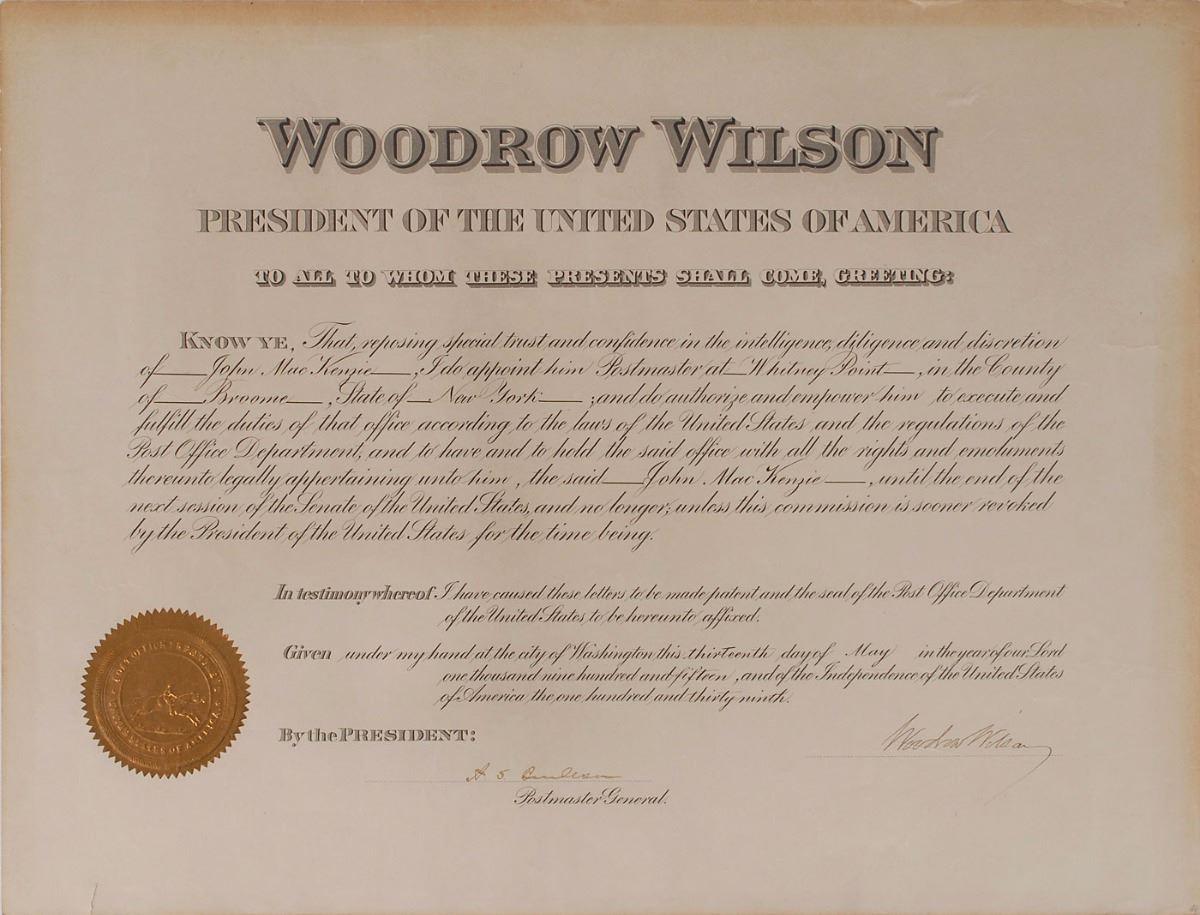 WOODROW WILSON
PRESIDENT OF THE UNITED STATES OF AMERICA
TO ALL TO WHOM THESE PRESENTS SHALL COME, GREETING:
KNOW YE, That, reposing special trust and confidence in the intelligence, diligence and discretion
of John Mac Kenzie, I do appoint him Postmaster at Whitney Point, in the County
of Broome, State of New York; and do authorize and empower him to execute and
fulfill the duties of that office according to the laws of the United States and the regulations of the
Post Office Department, and to have and to hold the said office with all the rights and emoluments
thereunto legally appertaining unto him, the said John Mac Kenzie, until the end of the
next session of the Senate of the United States, and no longer; unless this commission is sooner revoked
by the President of the United States for the time being.
In testimony whereof I have caused these letters to be made patent and the seal of the Post Office Department
of the United States to be hereunto affixed.
Given under my hand at the city of Washington this thirteenth day of May in the year of our Lord
one thousand nine hundred and fifteen, and of the Independence of the United States
of America the one hundred and thirty ninth.
By the PRESIDENT:
Woodrow Wilson
A S Burleson
Postmaster General.
POST OFFICE DEPARTMENT
UNITED STATES OF AMERICA